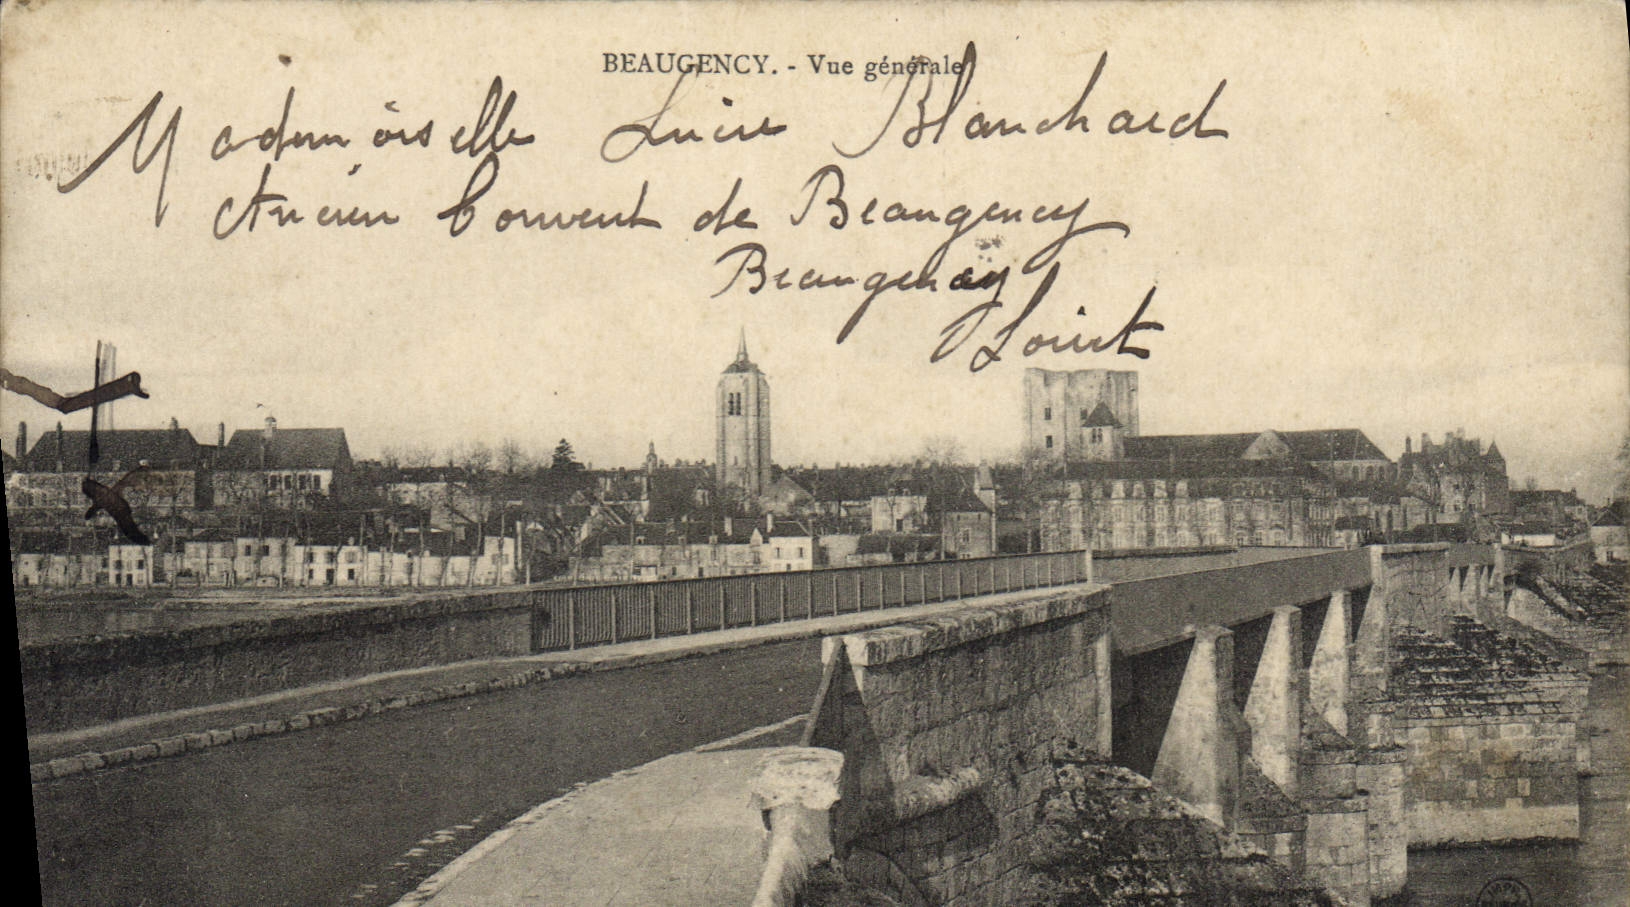 BEAUGENCY. - Vue générale
Mademoiselle Lucie Blanchard
Ancien Couvent de Beaugency
Beaugency
Loiret